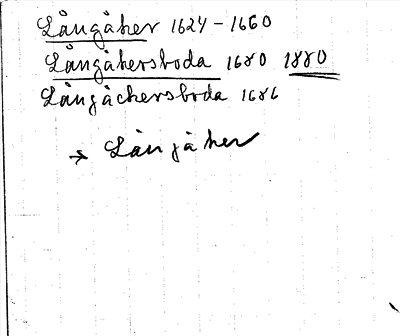 Långåker 1624-1660
Långåkersboda 1680 1880
Långåckersboda 1686
→ Långåker